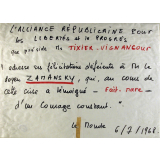 L'ALLIANCE RÉPUBLICAINE POUR
LES LIBERTÉS ET LE PROGRÈS
que préside Mr TIXIER-VIGNANCOUR
adresse ses félicitations déférentes à Mr le
Doyen ZAMANSKY, qui, au cours de
cette crise a témoigné - fait rare -
d'un courage constant."
Le Monde 6/7/1968.